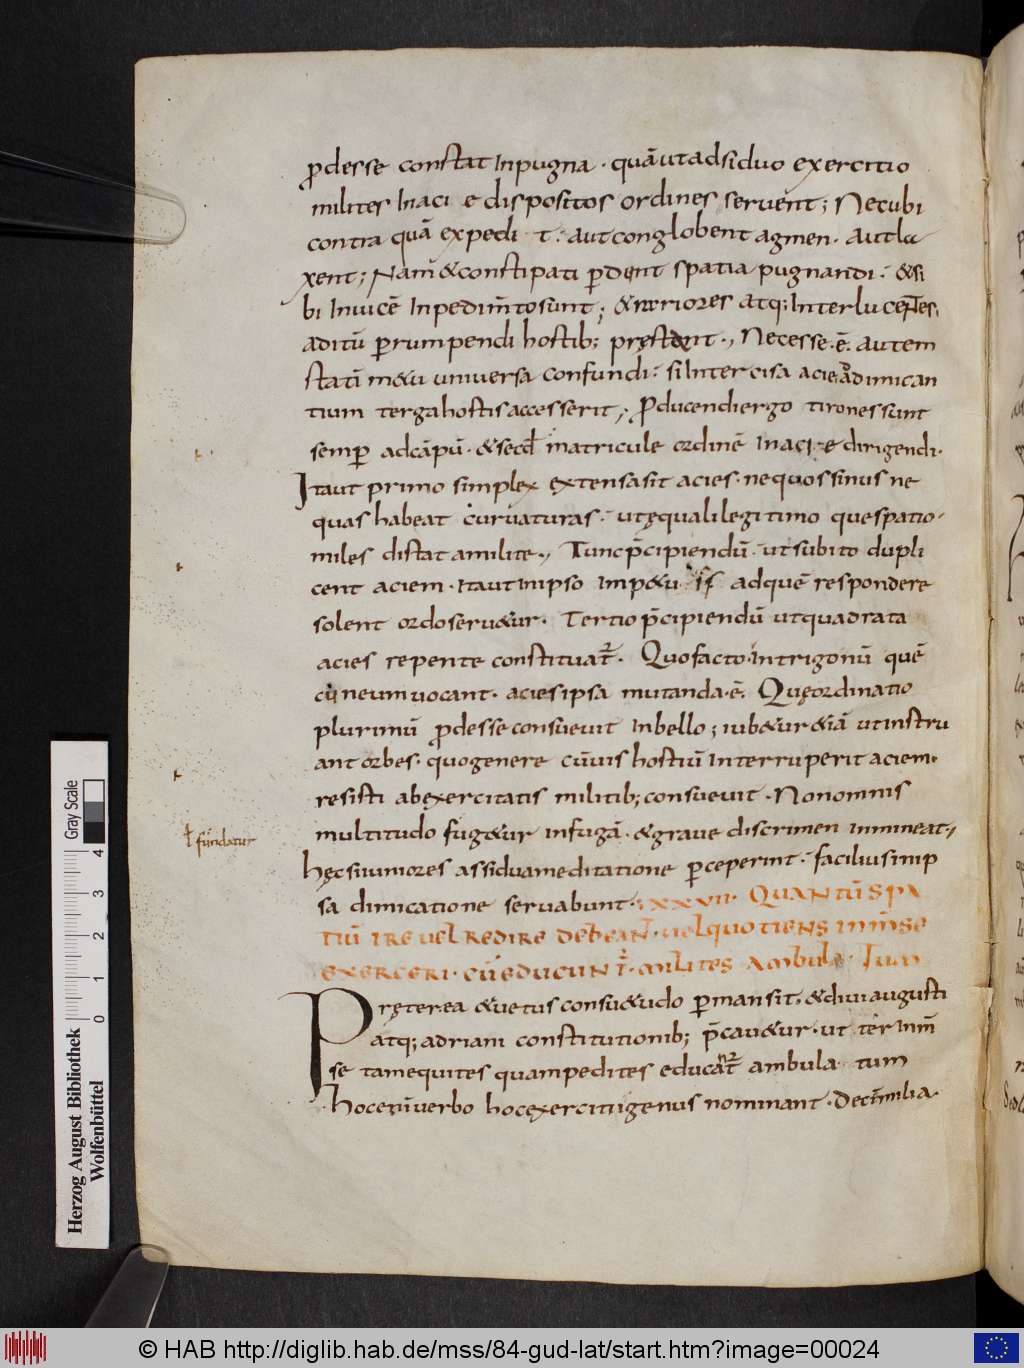 ꝓdesse constat Inpugna · quāutadsiduo exercitio
milites Inaci e dispositos ordines seruent; Necubi
contra quā expedi t : aut conglobent agmen · autla
xent; Nam̄ &constipati ꝑdent spatia pugnandi : &si
bi Inuicē Inpedim̄tosunt; &rariores atq; Interlucen̄tes
aditū ꝑrumpendi hostib; pręstant ·, Necesse · ē · autem
statī m&u uniuersa confundi : siIntercisa acie adimican
tium tergahostisaccesserit; Ꝓducendiergo tironessunt
semꝑ adcāpū · &secd̄ matricule ordinē Inaci e dirigendi ·
Itaut primo simplex extensasit acies · nequossinus ne
quas habeat curuaturas : utęqualilegitimo quespatio ·
miles distat amilite ·, Tuncp̄cipiendū · utsubito dupli
cent aciem · Itautinipso imp&u is adquē respondere
solent ordoseru&ur · Tertiop̄cipiendū utquadrata
acies repente constituat̄ · Quofacto · intrigonū quē
cuneumuocant · aciesipsa mutanda · ē · Quęordinatio
plurimū ꝓdesse consueuit Inbello; iub&ur&iā utinstru
ant orbes · quogenere cūuis hostiū Interruperit aciem ·
resisti abexercitatis militib; consueuit · Nonomnis
multitudo fug&ur infugā · &graue discrimen immineat ·,
ł fundatur
hęcsiiuniores assiduameditatione ꝑceperint · faciliusinip
sa dimicatione seruabunt · XXVII · QUANTŪSPA
TIŪ IRE UEL REDIRE DEBEAN̄ · UELQUOTIENS INM̄SE
EXERCERI · CŪEDUCUNT̄ · MILITES AMBULA TUM
Pręterea &uetus consu&udo ꝑmansit · &diuiaugusti
atq; adriani constitutionib; p̄cau&ur · ut ter Inm̄
se tamequites quampedites educant̄ ambula tum
hocenīuerbo hocexercitiigenus nominant · decēmilia ·
Gray Scale
0 1 2 3 4
Herzog August Bibliothek
Wolfenbüttel
© HAB http://diglib.hab.de/mss/84-gud-lat/start.htm?image=00024